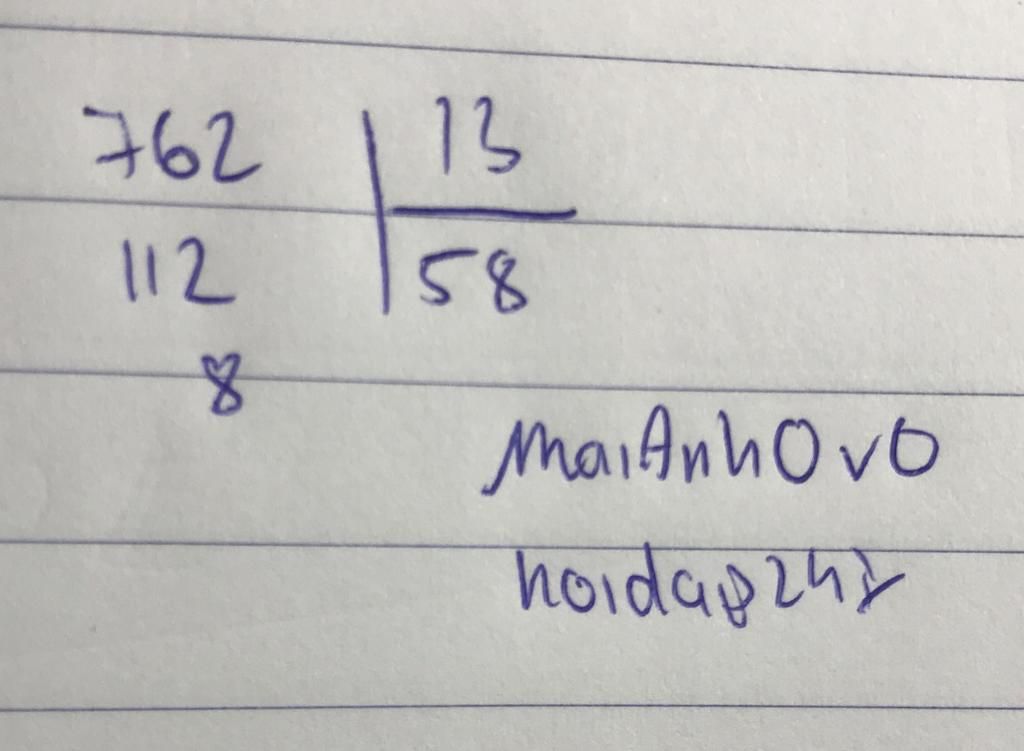 762 13
112 58
8
MaiAnhOvO
hoidap247